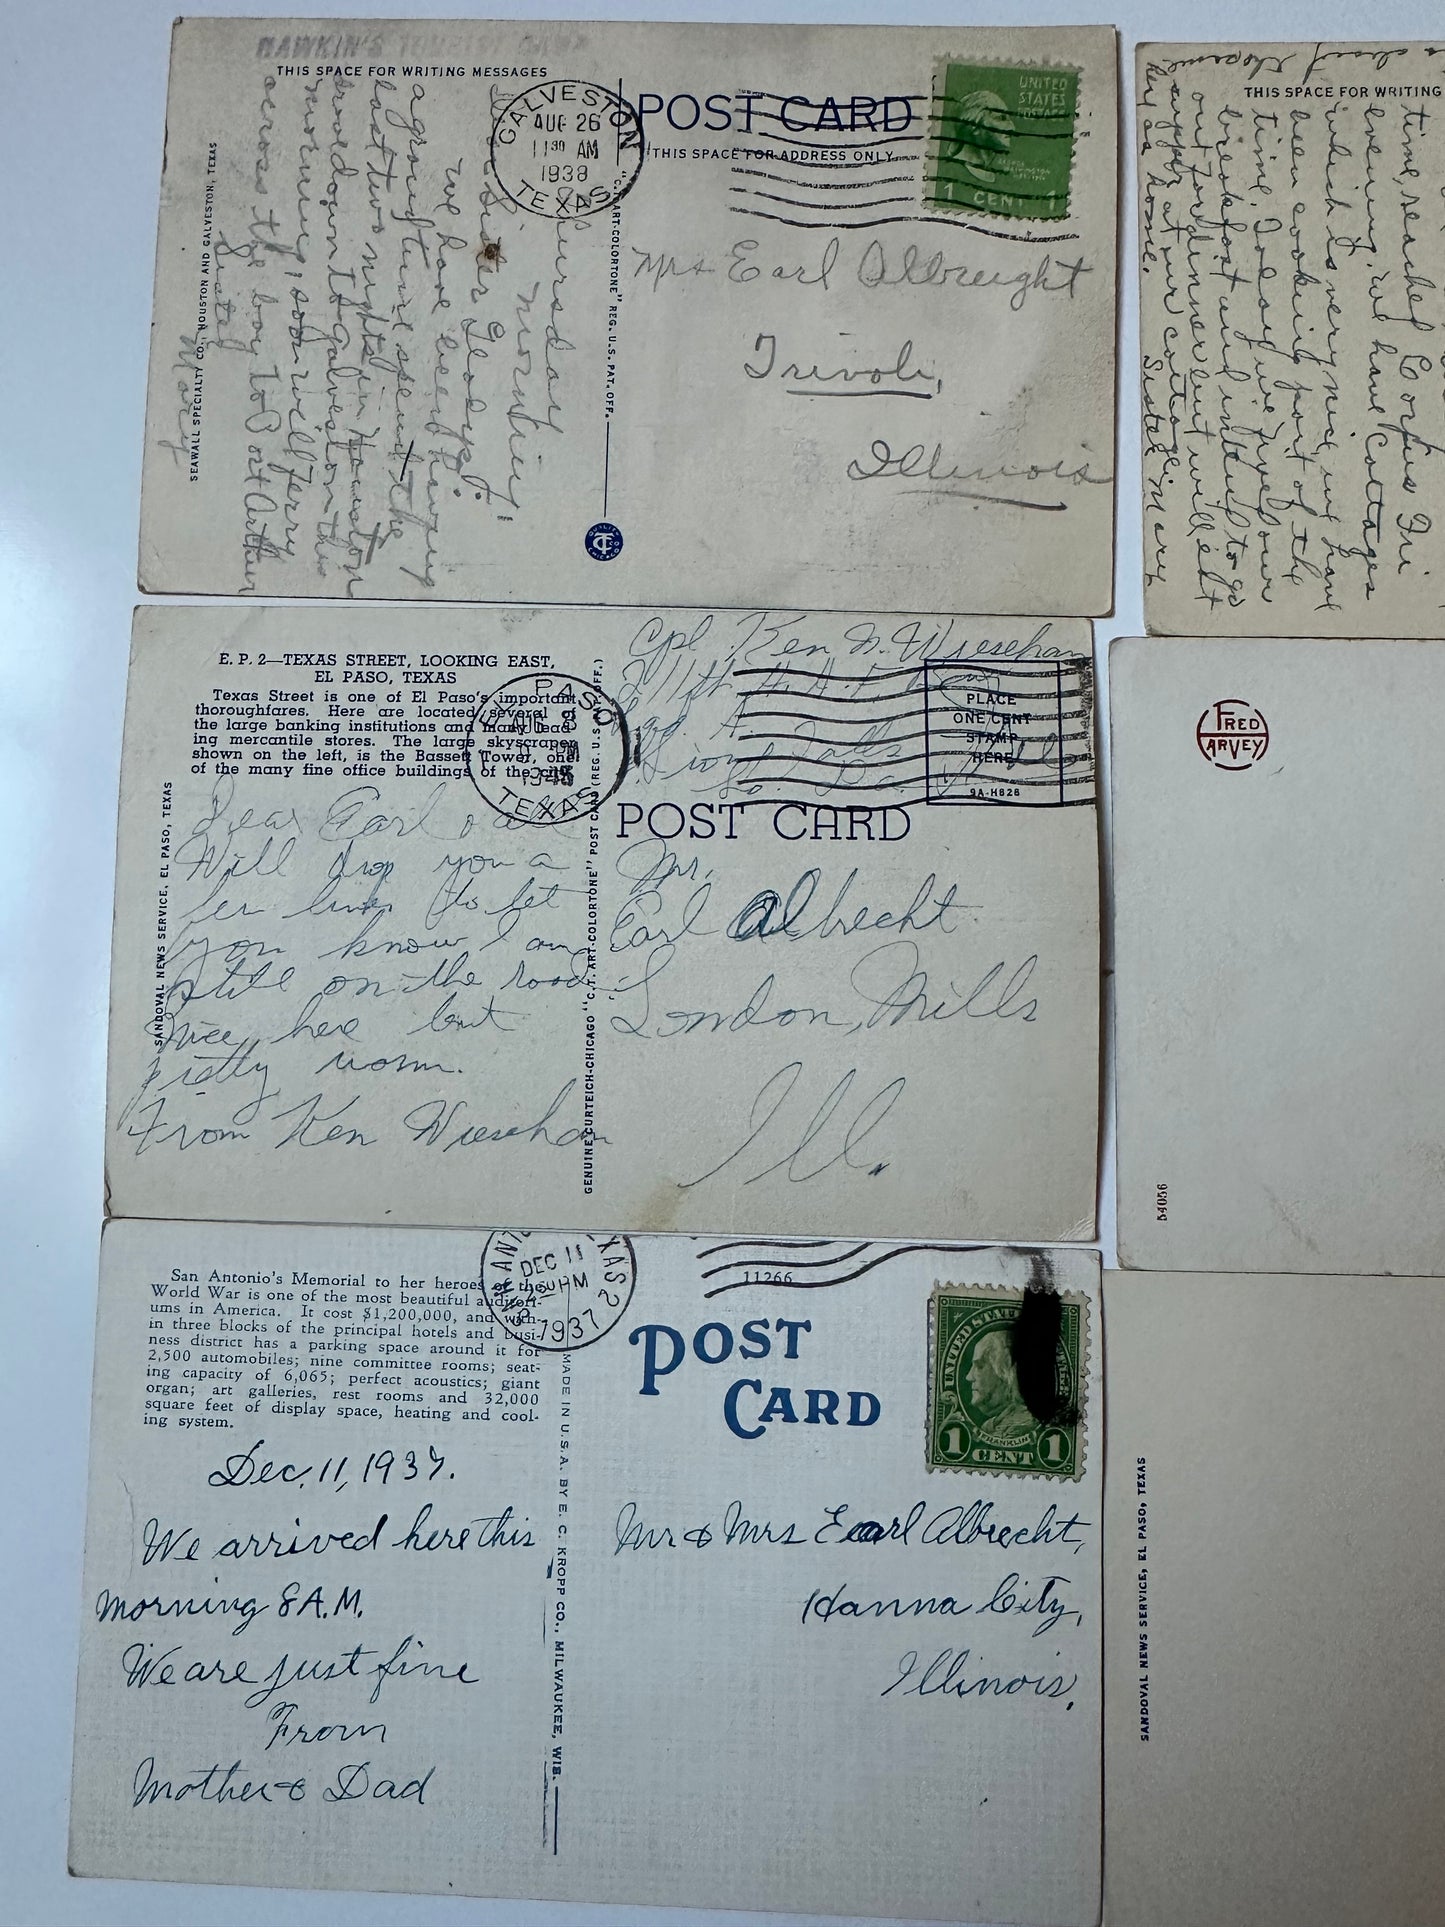 HAWKIN'S TOURIST CAMP
THIS SPACE FOR WRITING MESSAGES
GALVESTON
AUG 26
11 30 AM
1938
TEXAS
POST CARD
THIS SPACE FOR ADDRESS ONLY
UNITED
STATES
POSTAGE
1 CENT 1
SEAWALL SPECIALTY CO., HOUSTON AND GALVESTON, TEXAS
"C.T. ART-COLORTONE" REG. U.S. PAT. OFF.
Thursday
morning,
Sister Gladys:
we have been having
a good time spent the
last two nights in Houston
drove down to Galveston this
morning, soon will ferry
across the bay to Port Arthur
Sister
Mary
Mrs Earl Albreight
Trivoli,
Illinois
QUALITY
CT
CHICAGO
E. P. 2—TEXAS STREET, LOOKING EAST,
EL PASO, TEXAS
Texas Street is one of El Paso's important
thoroughfares. Here are located several of
the large banking institutions and many lead-
ing mercantile stores. The large skyscraper
shown on the left, is the Bassett Tower, one
of the many fine office buildings of the city.
EL PASO
AUG
TEXAS
Cpl. Ken N. Wieseham
A.
Sioux Falls
So. Da.
PLACE
ONE CENT
STAMP
HERE
9A-H828
SANDOVAL NEWS SERVICE, EL PASO, TEXAS
GENUINE CURTEICH-CHICAGO "C.T. ART-COLORTONE" POST CARD (REG. U.S. PAT. OFF.)
POST CARD
Dear Earl & all
Will drop you a
few lines to let
you know I am
still on the road
Nice here but
pretty warm.
From Ken Wieseham
Mr.
Earl Albrecht
London, Mills
Ill.
San Antonio's Memorial to her heroes of the
World War is one of the most beautiful auditori-
ums in America. It cost $1,200,000, and with-
in three blocks of the principal hotels and busi-
ness district has a parking space around it for
2,500 automobiles; nine committee rooms; seat-
ing capacity of 6,065; perfect acoustics; giant
organ; art galleries, rest rooms and 32,000
square feet of display space, heating and cool-
ing system.
SAN ANTONIO TEXAS 2
DEC 11
PM
1937
11266
POST
CARD
UNITED STATES
FRANKLIN
1 CENT 1
MADE IN U.S.A. BY E. C. KROPP CO., MILWAUKEE, WIS.
Dec. 11, 1937.
We arrived here this
morning 8 A.M.
We are just fine
From
Mother & Dad
Mr & Mrs Earl Albrecht,
Hanna City,
Illinois.
THIS SPACE FOR WRITING
time, reached Corpus Fri
evening. we have Cottages
which is very nice, we have
been cooking part of the
time. Today we fixed our
breakfast and intend to go
out for dinner but will eat
supper at our cottage.
Sister Mary
FRED
HARVEY
54056
SANDOVAL NEWS SERVICE, EL PASO, TEXAS